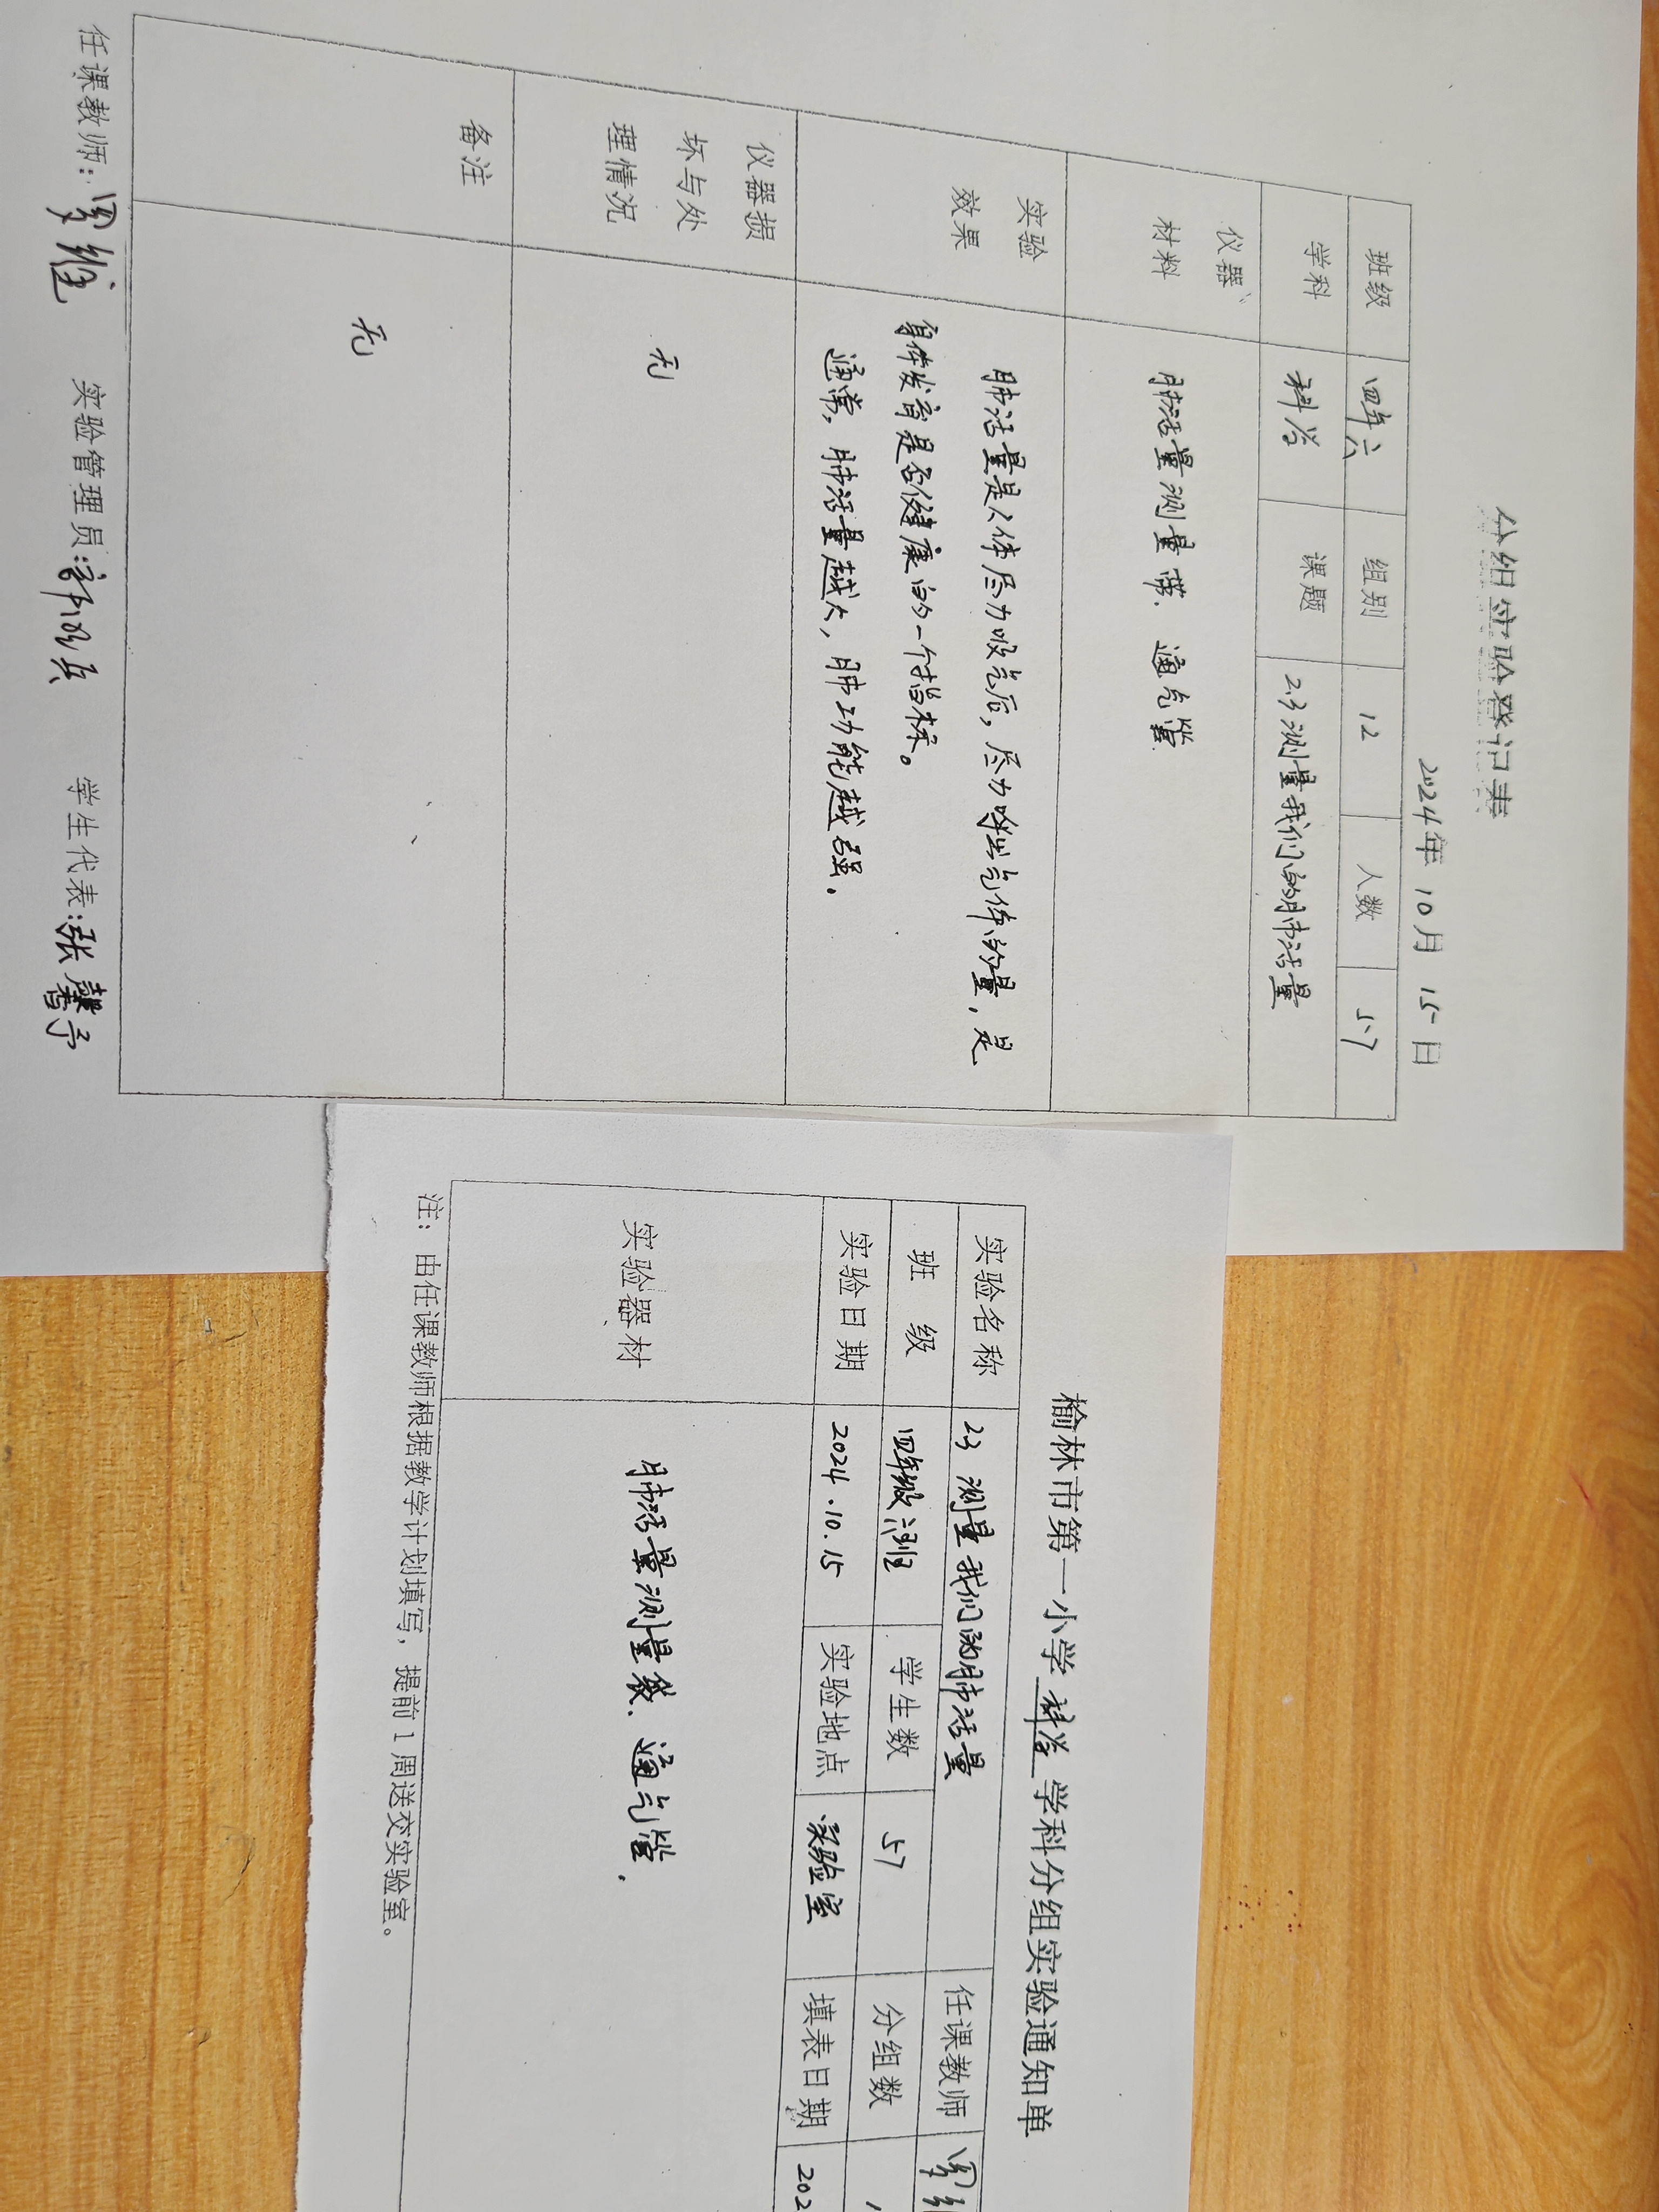 分组实验登记表
2024年 10月 15日
班级 四年六 组别 12 人数 57
学科 科学 课题 2.3测量我们的肺活量
仪器、
材料
肺活量测量带、通气管
实验
效果
肺活量是人体尽力吸气后,尽力呼出气体的量,是
身体发育是否健康的一个指标。
通常,肺活量越大,肺功能越强.
仪器损
坏与处
理情况
无
备注
无
任课教师: 实验管理员: 学生代表:张馨予
榆林市第一小学 科学 学科分组实验通知单
实验名称 2.3 测量我们的肺活量 任课教师
班 级 四年级六班 学生数 57 分组数
实验日期 2024.10.15 实验地点 实验室 填表日期 202
实验器材 肺活量测量袋、通气管.
注:由任课教师根据教学计划填写,提前1周送交实验室。